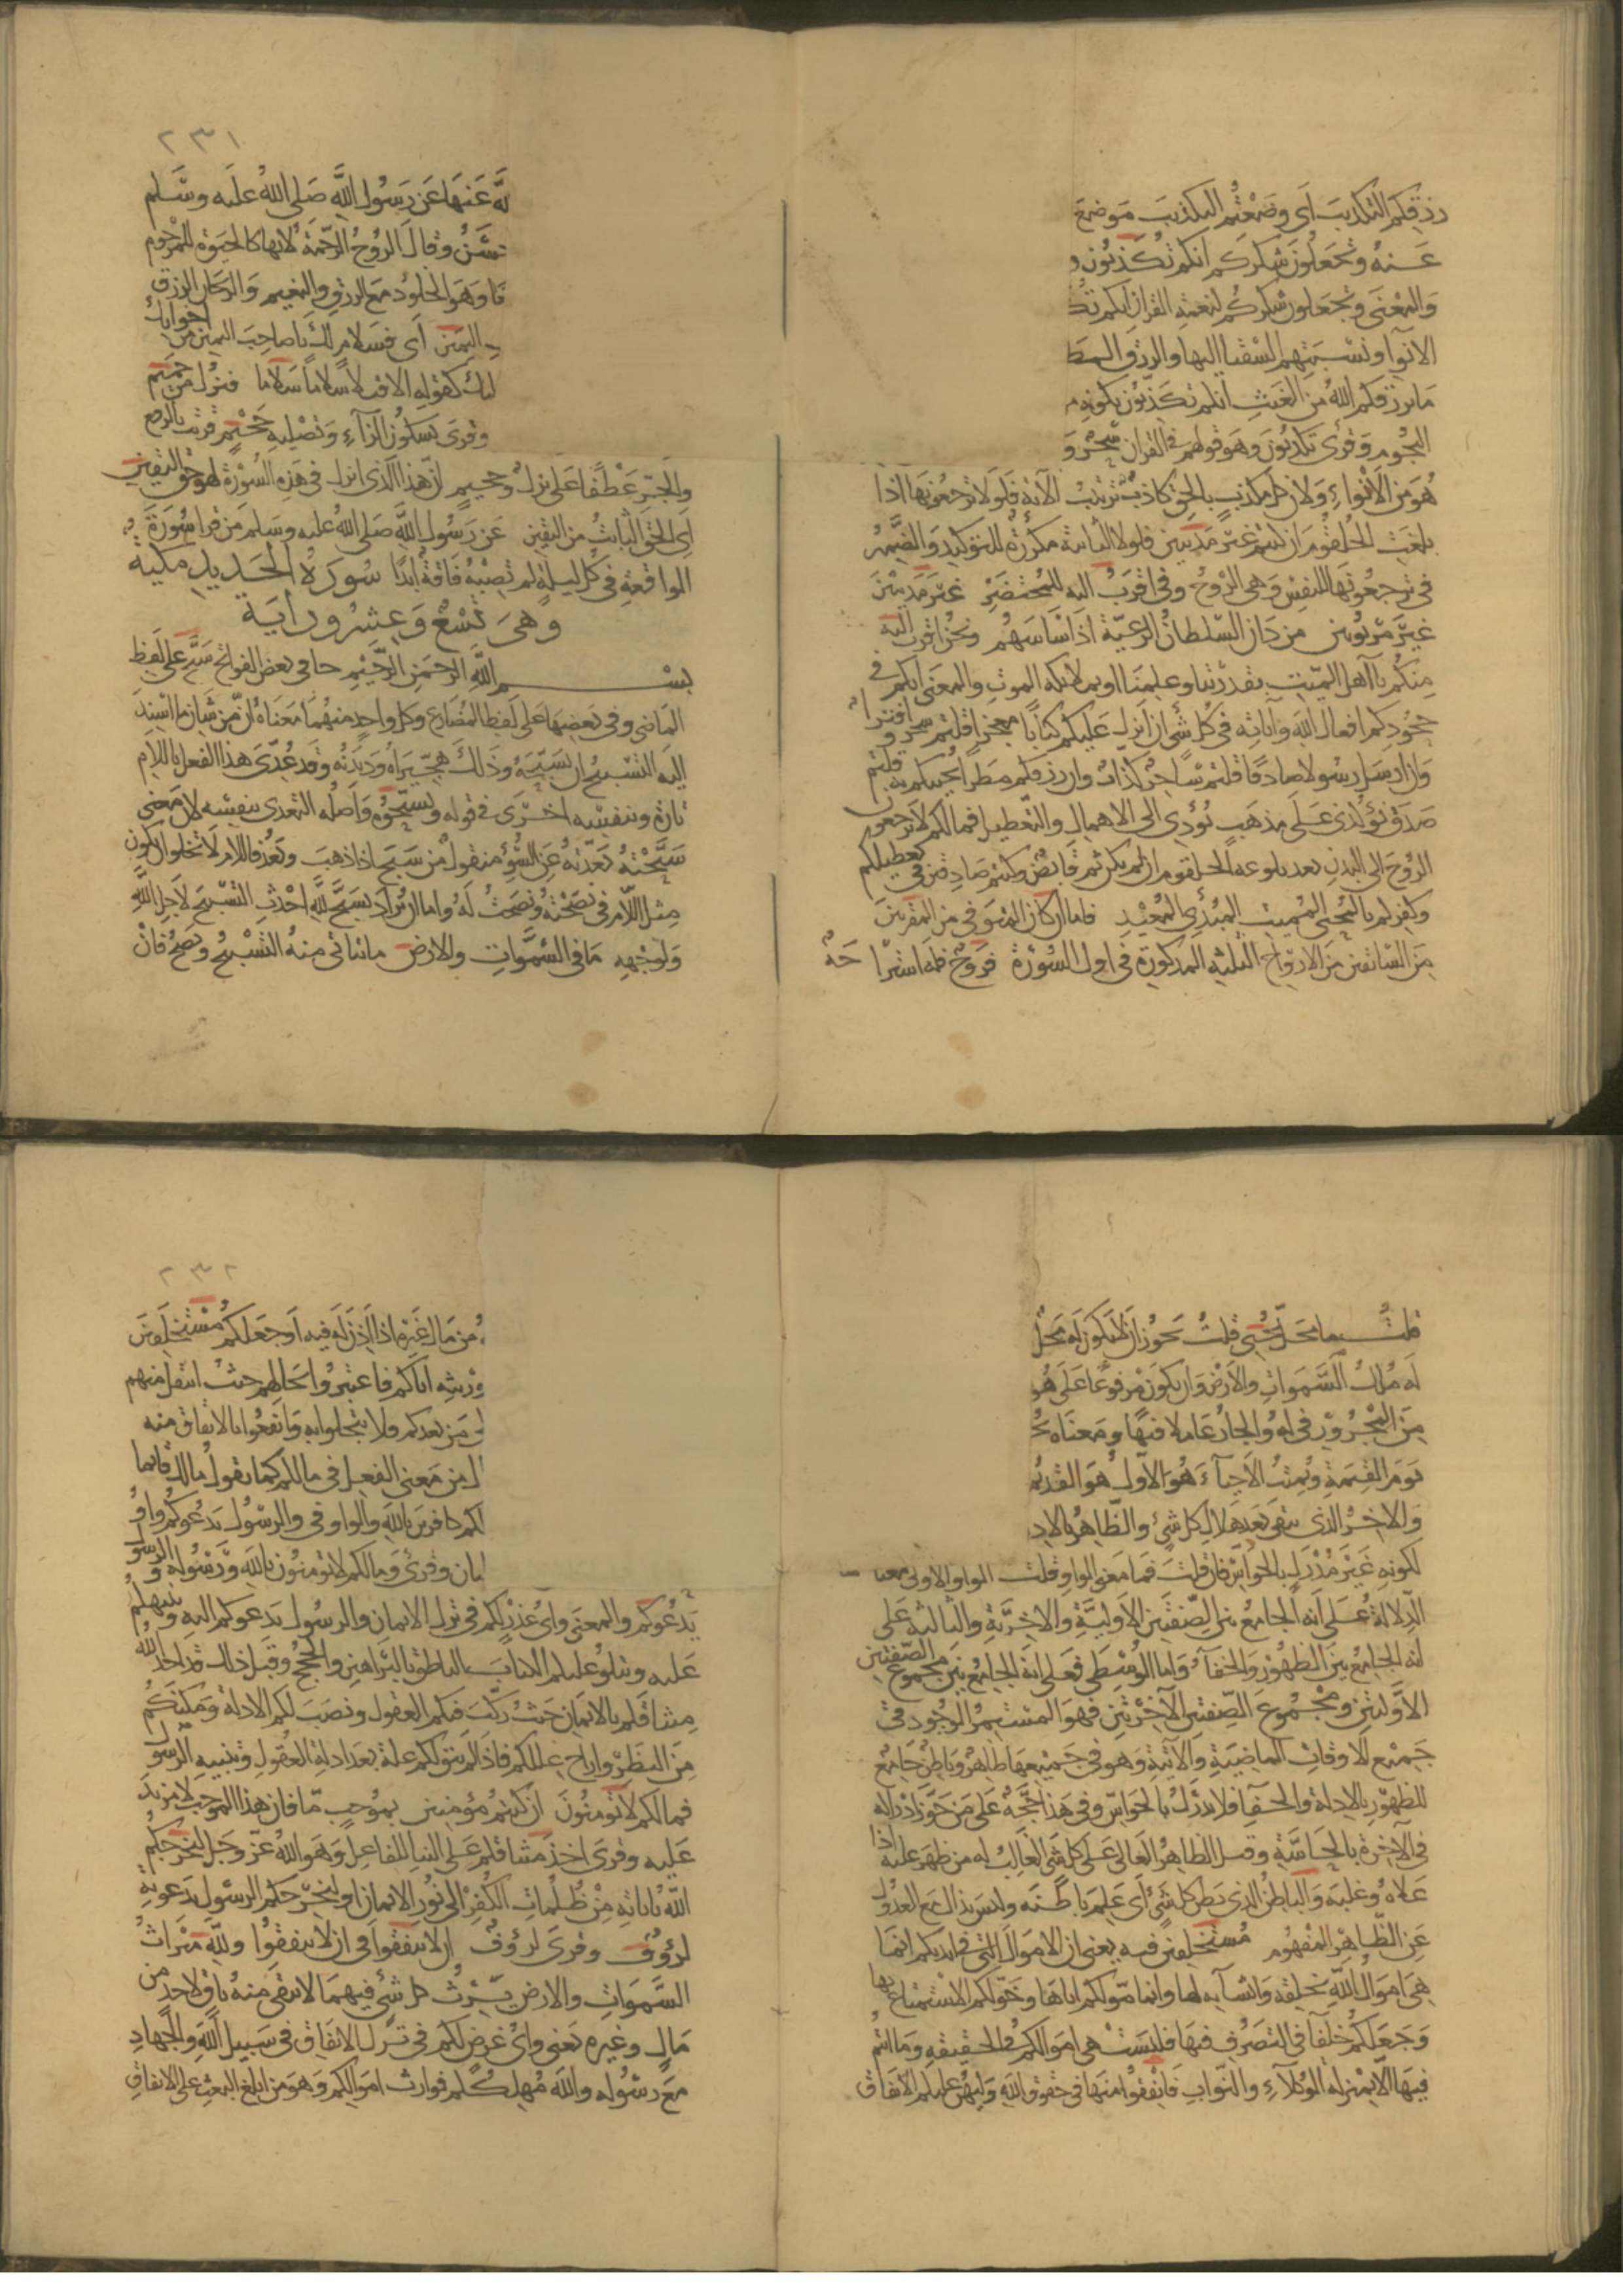 رزقكم التكذيب اى وضعتم التكذيب موضع
عنه وتجعلون شكركم انكم تكذبون و
والمعنى وتجعلون شكركم لنعمة القرآن انكم تكذ
الانوآ ونسبتهم السقيا اليها والرزق المط
ما يرزقكم الله من الغيث انكم تكذبون بكونه م
النجوم وقرئ تكذبون وهو قولهم فى القران سحر و
هو من الانواء ولان كل مكذب بالحق كاذب ترتيب الآية فلولا ترجعونها اذا
بلغت الحلقوم ان كنتم غير مدينين فلولا الثانية مكررة للتوكيد والضمير
فى ترجعونها للنفس وهى الروح وفى اقرب اليه للمحتضر غير مدينين
غير مربوبين من دان السلطان الرعية اذا ساسهم ونحن اقرب اليه
منكم يا اهل الميت بقدرتنا وعلمنا او بملائكة الموت والمعنى انكم فى
جحودكم افعال الله وآياته فى كل شئ ان انزل عليكم كتابا معجزا قلتم سحر وافتراء
وان ارسل رسولا صادقا قلتم ساحر كذاب وان رزقكم مطرا يحييكم به قلتم
صدق نوء كذى على مذهب يؤدى الى الاهمال والتعطيل فما لكم لا ترجعون
الروح الى البدن بعد بلوغه الحلقوم ان لم يكن ثم قابض وكنتم صادقين فى تعطيلكم
وكفركم بالمحيى المميت المبدئ المعيد فاما ان كان المتوفى من المقربين
من السابقين من الازواج الثلثة المذكورة فى اول السورة فروح فله استراحة
٢٣١
لله عنها عن رسول الله صلى الله عليه وسلم
وقال الروح الرحمة لانها كالحيوة للمرحوم
وهو الخلود مع الرزق والنعيم والريحان الرزق
اليمين اى فسلام لك يا صاحب اليمين من اخوانك
ليك كقوله الا قيلا سلاما سلاما فنزل من حميم
وقرى بسكون الزآء وتصلية جحيم قرئت بالرفع
والجر عطفا على نزل وحميم ان هذا الذى انزل فى هذه السورة لهو حق اليقين
اى الحق الثابت من اليقين عن رسول الله صلى الله عليه وسلم من قرا سورة
الواقعة فى كل ليلة لم تصبه فاقة ابدا سورة الحديد مكية
وهى تسع وعشرون اية
بسم الله الرحمن الرحيم جا فى بعض الفواتح سبح على لفظ
الماضى وفى بعضها على لفظ المضارع وكل واحد منهما معناه ان من شان ما اسند
اليه التسبيح ان يسبحه وذلك هجيراه وديدنه وقد عدى هذا الفعل باللام
تارة وبنفسه اخرى فى قوله وتسبحوه واصله التعدى بنفسه لان معنى
سبحته بعدته عن السوء منقول من سبح اذا ذهب وبعد فاللام لا تخلوا ان يكون
مثل اللام فى نصحته ونصحت له واما ان يراد بسبح لله احدث التسبيح لاجل الله
ولوجهه ما فى السموات والارض ما يتاتى منه التسبيح ويصح فان
قلت ما محل يحيى قلت يجوز ان لا يكون له محل
له ملك السموات والارض وان يكون مرفوعا على هو
من المجرور فى له والجار عاملا فيها ومعناه يح
يوم القيمة ويميت الاحياء هو الاول هو القديم
والاخر الذى يبقى بعد هلاك كل شئ والظاهر بالاد
لكونه غير مدرك بالحواس فان قلت فما معنى الواو قلت الواو الاولى معنا
الدلالة على انه الجامع بين الصفتين الاولية والاخرية والثالثة على
انه الجامع بين الظهور والخفآء واما الوسطى فعلى انه الجامع بين مجموع الصفتين
الاوليين ومجموع الصفتين الاخريين فهو المستمر الوجود فى
جميع الاوقات الماضية والآتية وهو فى جميعها ظاهر وباطن جامع
للظهور بالادلة والخفآء فلا يدرك بالحواس وفى هذا حجة على من جوز ادراكه
فى الآخرة بالحاسة وقيل الظاهر العالى على كل شئ الغالب له من ظهر عليه اذا
علاه وغلبه والباطن الذى بطن كل شئ اى علم باطنه وليس بذاك مع العدول
عن الظاهر المفهوم مستخلفين فيه يعنى ان الاموال التى فى ايديكم انما
هى اموال الله بخلقه وانشآئه لها وانما مولكم اياها وخولكم الاستمتاع بها
وجعلكم خلفا فى التصرف فيها فليست هى اموالكم فى الحقيقة وما انتم
فيها الا بمنزلة الوكلآء والنواب فانفقوا منها فى حقوق الله وليهن عليكم الانفاق
٢٣٢
من مال غيره اذا اذن له فيه او جعلكم مستخلفين
وريثه اياكم فاعتبروا بحالهم حيث انتقل منهم
من بعدكم فلا تبخلوا به وانفعوا بالانفاق منه
ل من معنى الفعل فى ما لكم كما تقول ما لك قائما
لكم كافرين بالله والواو فى والرسول يدعوكم واو
وقرئ وما لكم لا تؤمنون بالله ورسوله والرسول
يدعوكم والمعنى واى عذر لكم فى ترك الايمان والرسول يدعوكم اليه وينبهكم
عليه ويتلو عليكم الكتاب الناطق بالبراهين والحجج وقبل ذلك قد اخذ الله
ميثاقكم بالايمان حيث ركب فيكم العقول ونصب لكم الادلة ومكنكم
من النظر وازاح عللكم فاذ لم يتق لكم علة بعد ادلة العقول وتنبيه الرسول
فما لكم لا تؤمنون ان كنتم مؤمنين بموجب ما فان هذا الموجب لا مزيد
عليه وقرى اخذ ميثاقكم على البنا للفاعل وهو الله عز وجل ليخرجكم
الله باياته من ظلمات الكفر الى نور الايمان او ليخرجكم الرسول بدعوته
لرؤوف وقرى لرؤف الا تنفقوا فى ان لا تنفقوا ولله ميراث
السموات والارض يرث كل شئ فيهما لا يبقى منه باق لاحد من
مال وغيره يعنى واى غرض لكم فى ترك الانفاق فى سبيل الله والجهاد
مع رسوله والله مهلككم فوارث اموالكم وهو من ابلغ البعث على الانفاق